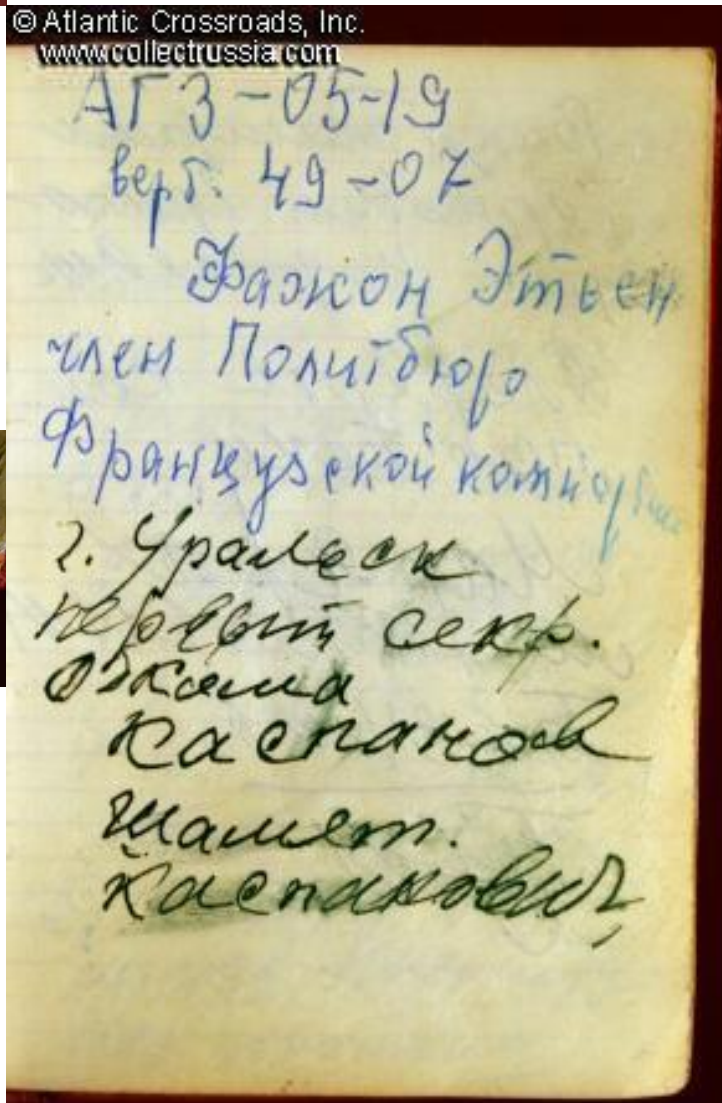 © Atlantic Crossroads, Inc.
www.collectrussia.com
АГЗ-05-19
верт. 49-07
Фажон Этьен
член Политбюро
Французской компартии
г. Уральск
первый секр.
обкома
Каспанов
Шамет.
Каспанович,